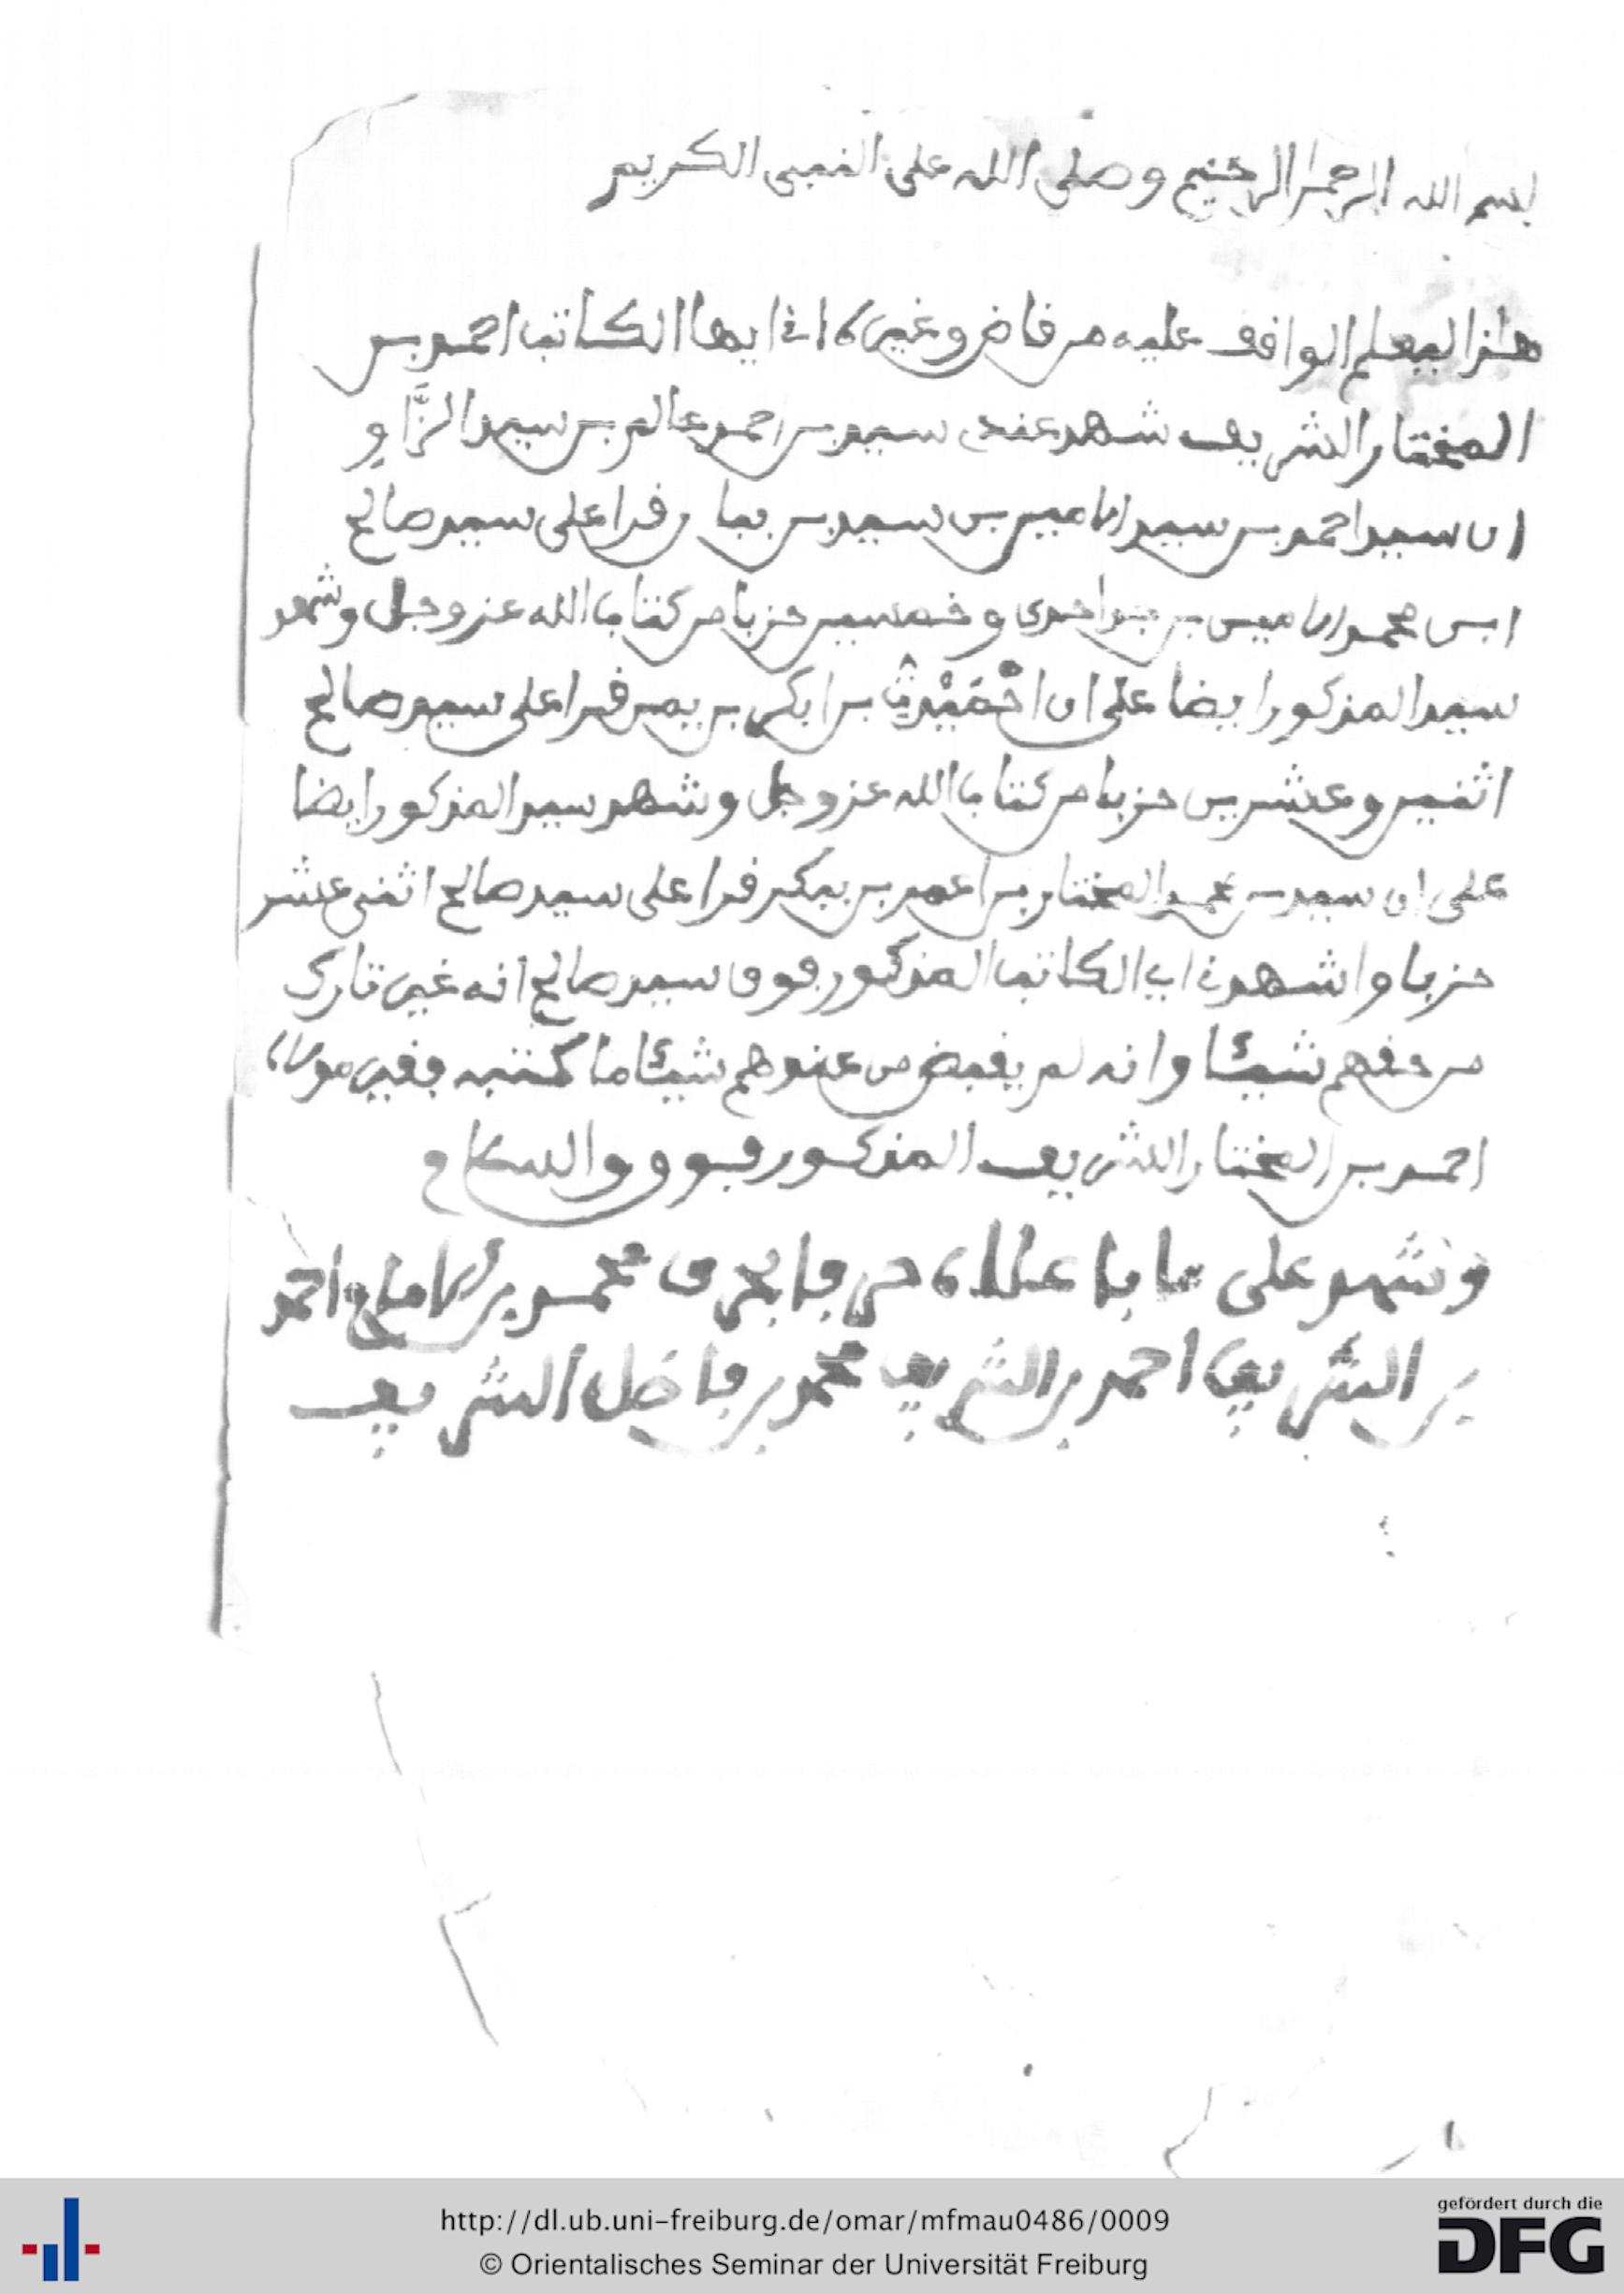 بسم الله الرحمن الرحيم وصلى الله على النبي الكريم
هذا ليعلم الواقف عليه من قاض وغيره انى ايها الكاتب احمد بن
المختار الشريف شهد عندى سيد بن احمد عالم بن سيد الزَّاوِ
ان سيد احمد بن سيد الامين بن سيد بن ببا قرا على سيد صالح
ابن محمد الامين بن احدى وخمسين حزبا من كتاب الله عز وجل وشهد
سيد المذكور ايضا على ان بن ابكر بن قرا على سيد صالح
اثنين وعشرين حزبا من كتاب الله عز وجل وشهد سيد المذكور ايضا
على ان سيد بن محمد المختار بن اعمر بن ببكر قرا على سيد صالح اثنى عشر
حزبا واشهدنى اى الكاتب المذكور فوق سيد صالح انه غير تارك
من حقهم شيئا وانه لم يقبض من عندهم شيئا ما كتبه فقير مولاه
احمد بن المختار الشريف المذكور فوق والسلام
ونشهد على ما با علاه حرفا بحرف محمد بن الامام احمد
بن الشريف احمد بن الشريف محمد بن فاضل الشريف
http://dl.ub.uni-freiburg.de/omar/mfmau0486/0009
© Orientalisches Seminar der Universität Freiburg
gefördert durch die
DFG